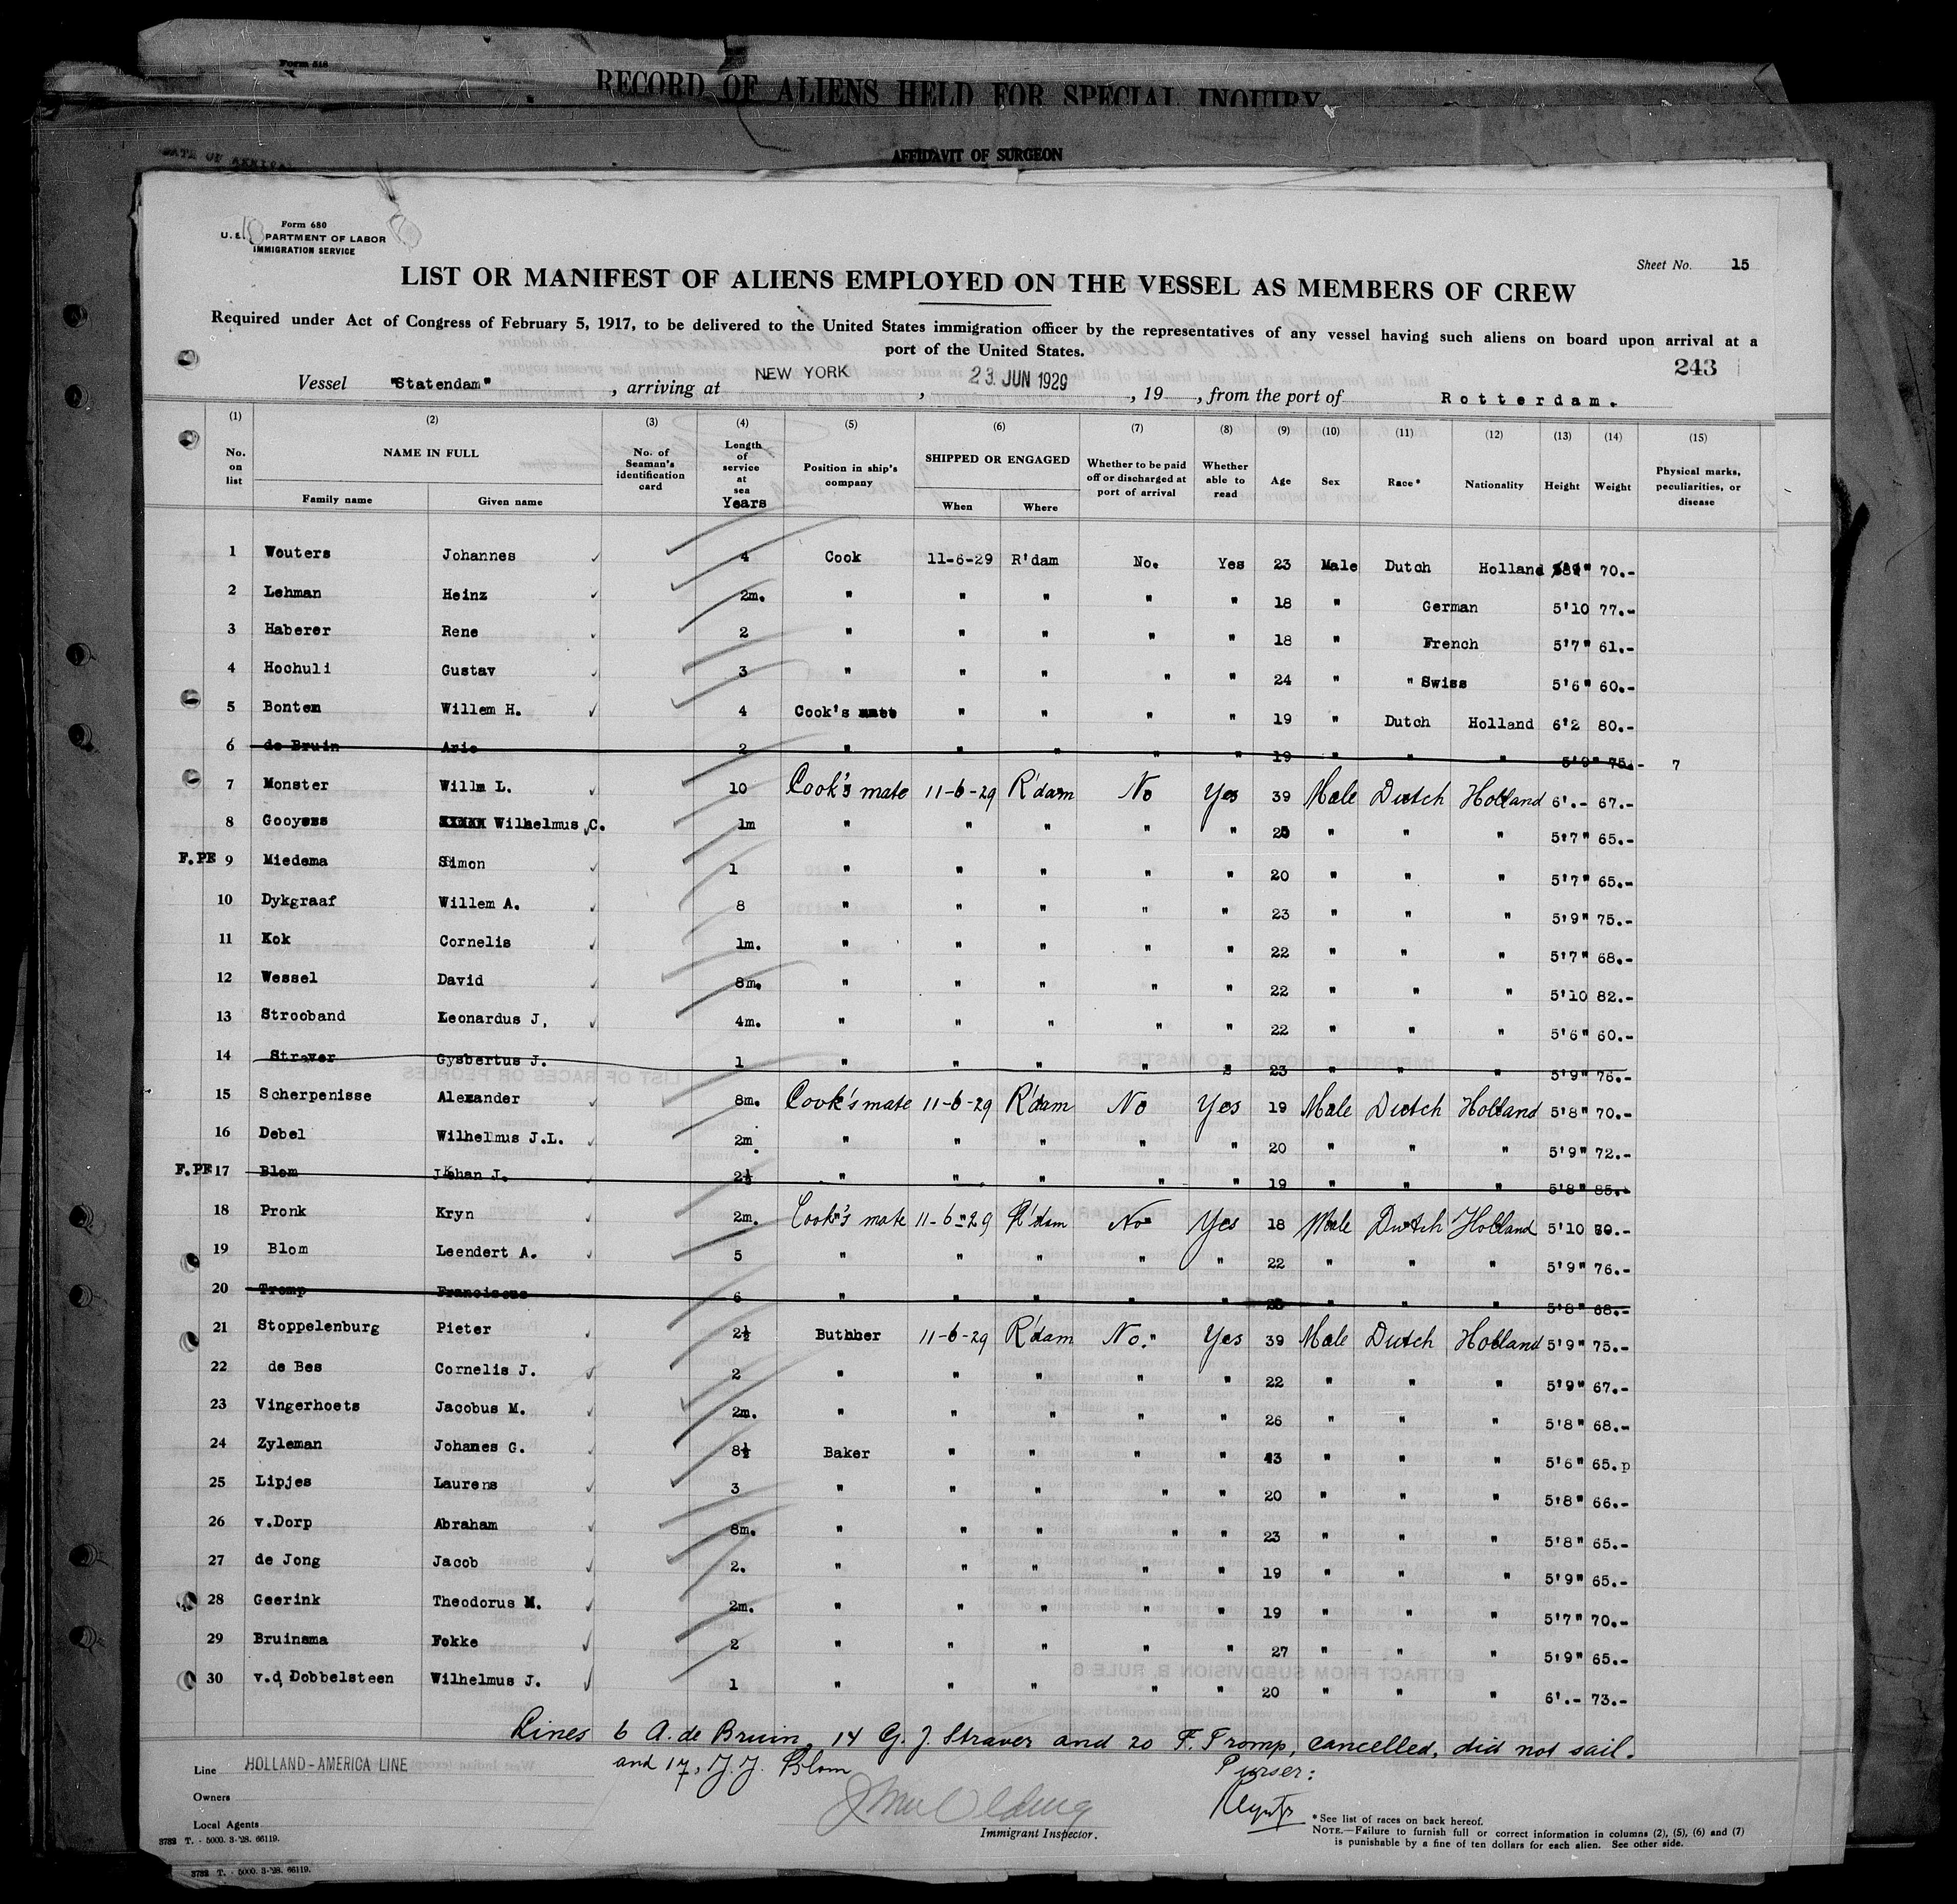 Form 618
RECORD OF ALIENS HELD FOR SPECIAL INQUIRY
DATE OF ARRIVAL
AFFIDAVIT OF SURGEON
Form 680
U. S. DEPARTMENT OF LABOR
IMMIGRATION SERVICE
Sheet No. 15
LIST OR MANIFEST OF ALIENS EMPLOYED ON THE VESSEL AS MEMBERS OF CREW
Required under Act of Congress of February 5, 1917, to be delivered to the United States immigration officer by the representatives of any vessel having such aliens on board upon arrival at a
port of the United States.
243
Vessel "Statendam" , arriving at NEW YORK , 23 JUN 1929 , 19 , from the port of Rotterdam.
(1) (2) (3) (4) (5) (6) (7) (8) (9) (10) (11) (12) (13) (14) (15)
No. on list NAME IN FULL Family name Given name No. of Seaman's identification card Length of service at sea Years Position in ship's company SHIPPED OR ENGAGED When Where Whether to be paid off or discharged at port of arrival Whether able to read Age Sex Race* Nationality Height Weight Physical marks, peculiarities, or disease
1 Wouters Johannes 4 Cook 11-6-29 R'dam No. Yes 23 Male Dutch Holland 70.-
2 Lehman Heinz 2m. " " " " " 18 " German 5'10 77.-
3 Haberer Rene 2 " " " " " 18 " French 5'7" 61.-
4 Hochuli Gustav 3 " " " " " 24 " " Swiss 5'6" 60.-
5 Bontem Willem H. 4 Cook's mate " " " " 19 " Dutch Holland 6'2 80.-
6 de Bruin Arie 2 " " " " " 19 " " " 5'9" 75.- 7
7 Monster Willm L. 10 Cook's mate 11-6-29 R'dam No Yes 39 Male Dutch Holland 6'.- 67.-
8 Gooyens Wilhelmus C. 1m " " " " " 25 " " " 5'7" 65.-
F.PE 9 Miedema Simon 1 " " " " " 20 " " " 5'7" 65.-
10 Dykgraaf Willem A. 8 " " " " " 23 " " " 5'9" 75.-
11 Kok Cornelis 1m. " " " " " 22 " " " 5'7" 68.-
12 Wessel David 8m. " " " " " 22 " " " 5'10 82.-
13 Strooband Leonardus J, 4m. " " " " " 22 " " " 5'6" 60.-
14 Straver Gysbertus J. 1 " " " " " 23 " " " 5'9" 76.-
15 Scherpenisse Alexander 8m. Cook's mate 11-6-29 R'dam No Yes 19 Male Dutch Holland 5'8" 70.-
16 Debel Wilhelmus J.L. 2m. " " " " " 20 " " " 5'9" 72.-
F.PE 17 Blom Johan J. 2½ " " " " " 19 " " " 5'8" 85.-
18 Pronk Kryn 2m. Cook's mate 11-6-29 R'dam No Yes 18 Male Dutch Holland 5'10
19 Blom Leendert A. 5 " " " " " 22 " " " 5'9" 76.-
20 Tromp Franciscus 6 " " " " " " " " 5'8" 68.-
21 Stoppelenburg Pieter 2½ Buthher 11-6-29 R'dam No. Yes 39 Male Dutch Holland 5'9" 75.-
22 de Bes Cornelis J. 2 " " " " " 22 " " " 5'9" 67.-
23 Vingerhoets Jacobus M. 2m. " " " " " 26 " " " 5'8" 68.-
24 Zyleman Johanes G. 8½ Baker " " " " 43 " " " 5'6" 65.p
25 Lipjes Laurens 3 " " " " " 20 " " " 5'8" 66.-
26 v.Dorp Abraham 8m. " " " " " 23 " " " 5'8" 65.-
27 de Jong Jacob 2. " " " " " 19 " " " 5'9" 65.-
28 Geerink Theodorus M. 2m. " " " " " 19 " " " 5'7" 70.-
29 Bruinsma Fokke 2 " " " " " 27 " " " 5'9" 65.-
30 v.d, Dobbelsteen Wilhelmus J. 1 " " " " " 20 " " " 6'.- 73.-
Lines 6 A. de Bruin, 14 G. J. Straver and 20 F. Tromp, cancelled, did not sail.
and 17, J. J. Blom
Purser:
Line HOLLAND-AMERICA LINE
Owners
Local Agents
Immigrant Inspector.
* See list of races on back hereof.
NOTE.—Failure to furnish full or correct information in columns (2), (5), (6) and (7)
is punishable by a fine of ten dollars for each alien. See other side.
3732 T. - 5000. 3-'28. 66119.
3732 T. - 5000. 3-'28. 66119.